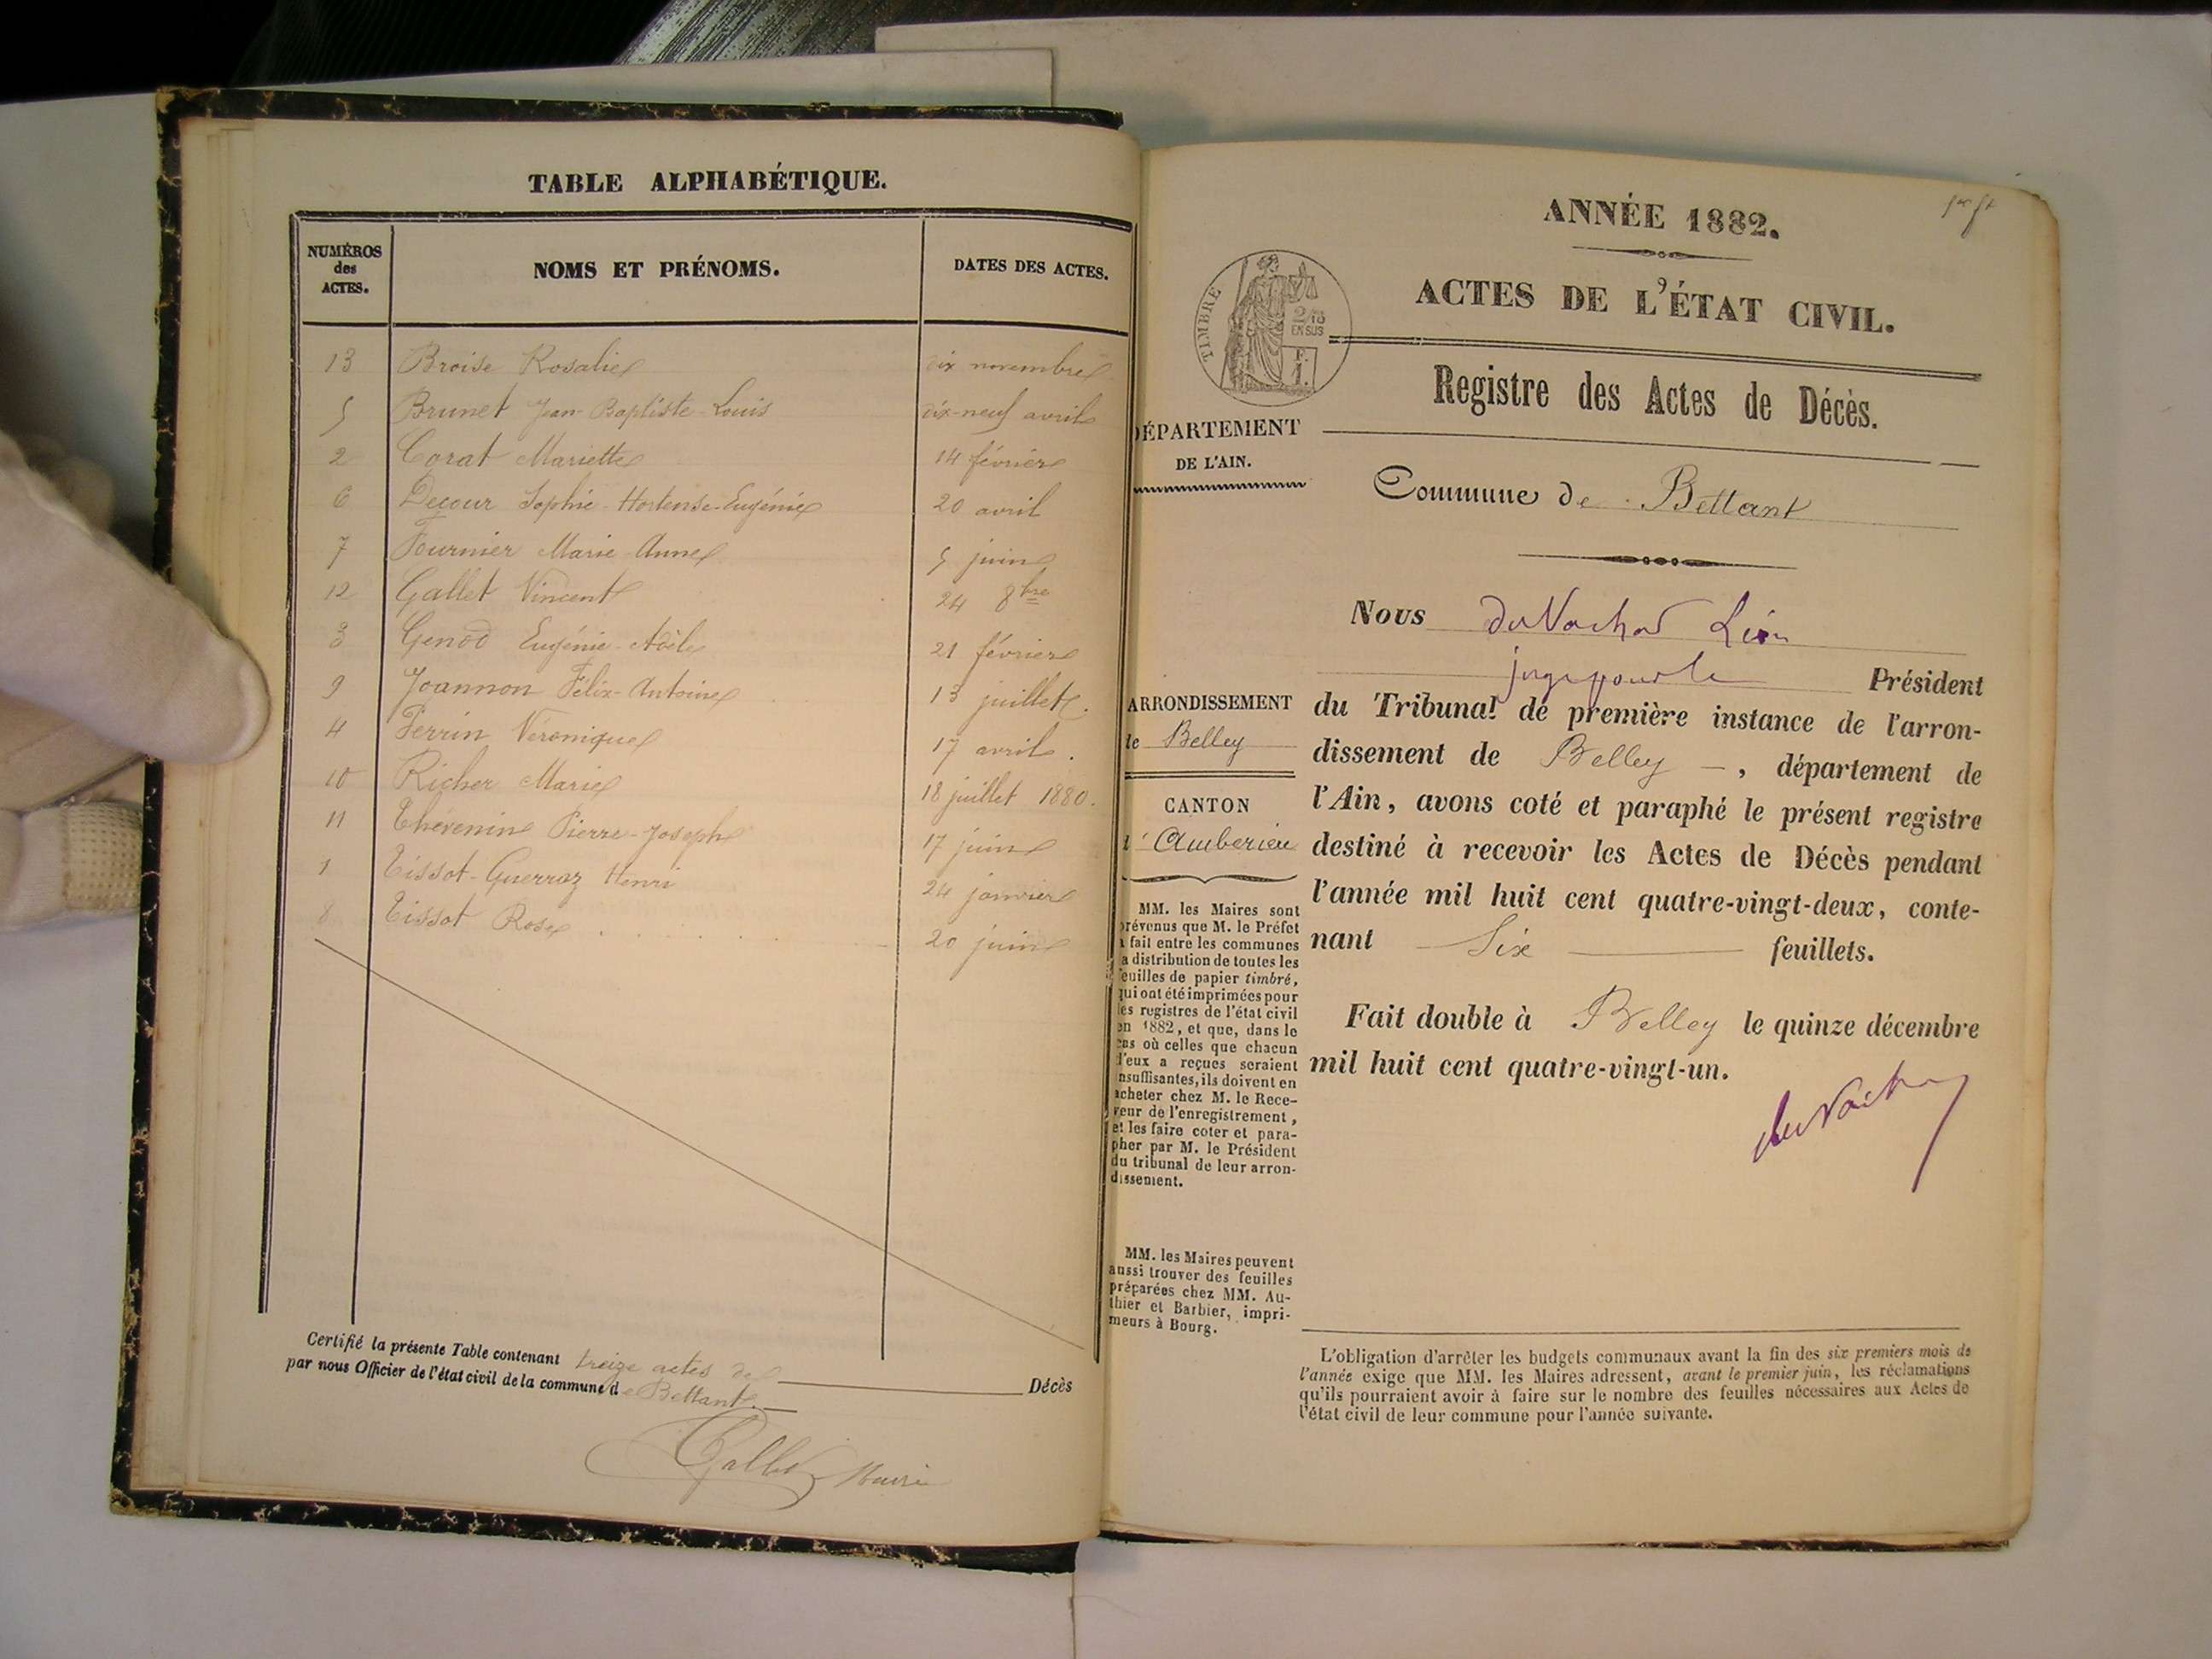 TABLE ALPHABÉTIQUE.
NUMÉROS des ACTES. NOMS ET PRÉNOMS. DATES DES ACTES.
13 Broise Rosalie dix novembre
5 Brunet Jean-Baptiste-Louis dix-neuf avril
2 Corat Mariette 14 février
6 Decour Sophie-Hortense-Eugénie 20 avril
7 Fournier Marie-Anne 5 juin
12 Gallet Vincent 24 8bre
3 Genod Eugénie-Adèle 21 février
9 Joannon Félix-Antoine 13 juillet.
4 Perrin Véronique 17 avril.
10 Richer Marie 18 juillet 1880.
11 Thévenin Pierre-Joseph 17 juin
1 Tissot-Guerraz Henri 24 janvier
8 Tissot Rose 20 juin
Certifié la présente Table contenant treize actes de Décès
par nous Officier de l'état civil de la commune de Bettant.
Gallet Maire
ANNÉE 1882.
TIMBRE
2/10
EN SUS
ACTES DE L'ÉTAT CIVIL.
Registre des Actes de Décès.
DÉPARTEMENT
DE L'AIN.
Commune de Bettant
Nous du Nachod Léon
juge pour le Président
du Tribunal de première instance de l'arron-
dissement de Belley —, département de
l'Ain, avons coté et paraphé le présent registre
destiné à recevoir les Actes de Décès pendant
l'année mil huit cent quatre-vingt-deux, conte-
nant Six feuillets.
Fait double à Belley le quinze décembre
mil huit cent quatre-vingt-un.
ARRONDISSEMENT
de Belley
CANTON
d'Amberieu
MM. les Maires sont
prévenus que M. le Préfet
a fait entre les communes
la distribution de toutes les
feuilles de papier timbré,
qui ont été imprimées pour
les registres de l'état civil
en 1882, et que, dans le
cas où celles que chacun
d'eux a reçues seraient
insuffisantes, ils doivent en
acheter chez M. le Rece-
veur de l'enregistrement,
et les faire coter et para-
pher par M. le Président
du tribunal de leur arron-
dissement.
MM. les Maires peuvent
aussi trouver des feuilles
préparées chez MM. Au-
thier et Barbier, impri-
meurs à Bourg.
L'obligation d'arrêter les budgets communaux avant la fin des six premiers mois de
l'année exige que MM. les Maires adressent, avant le premier juin, les réclamations
qu'ils pourraient avoir à faire sur le nombre des feuilles nécessaires aux Actes de
l'état civil de leur commune pour l'année suivante.